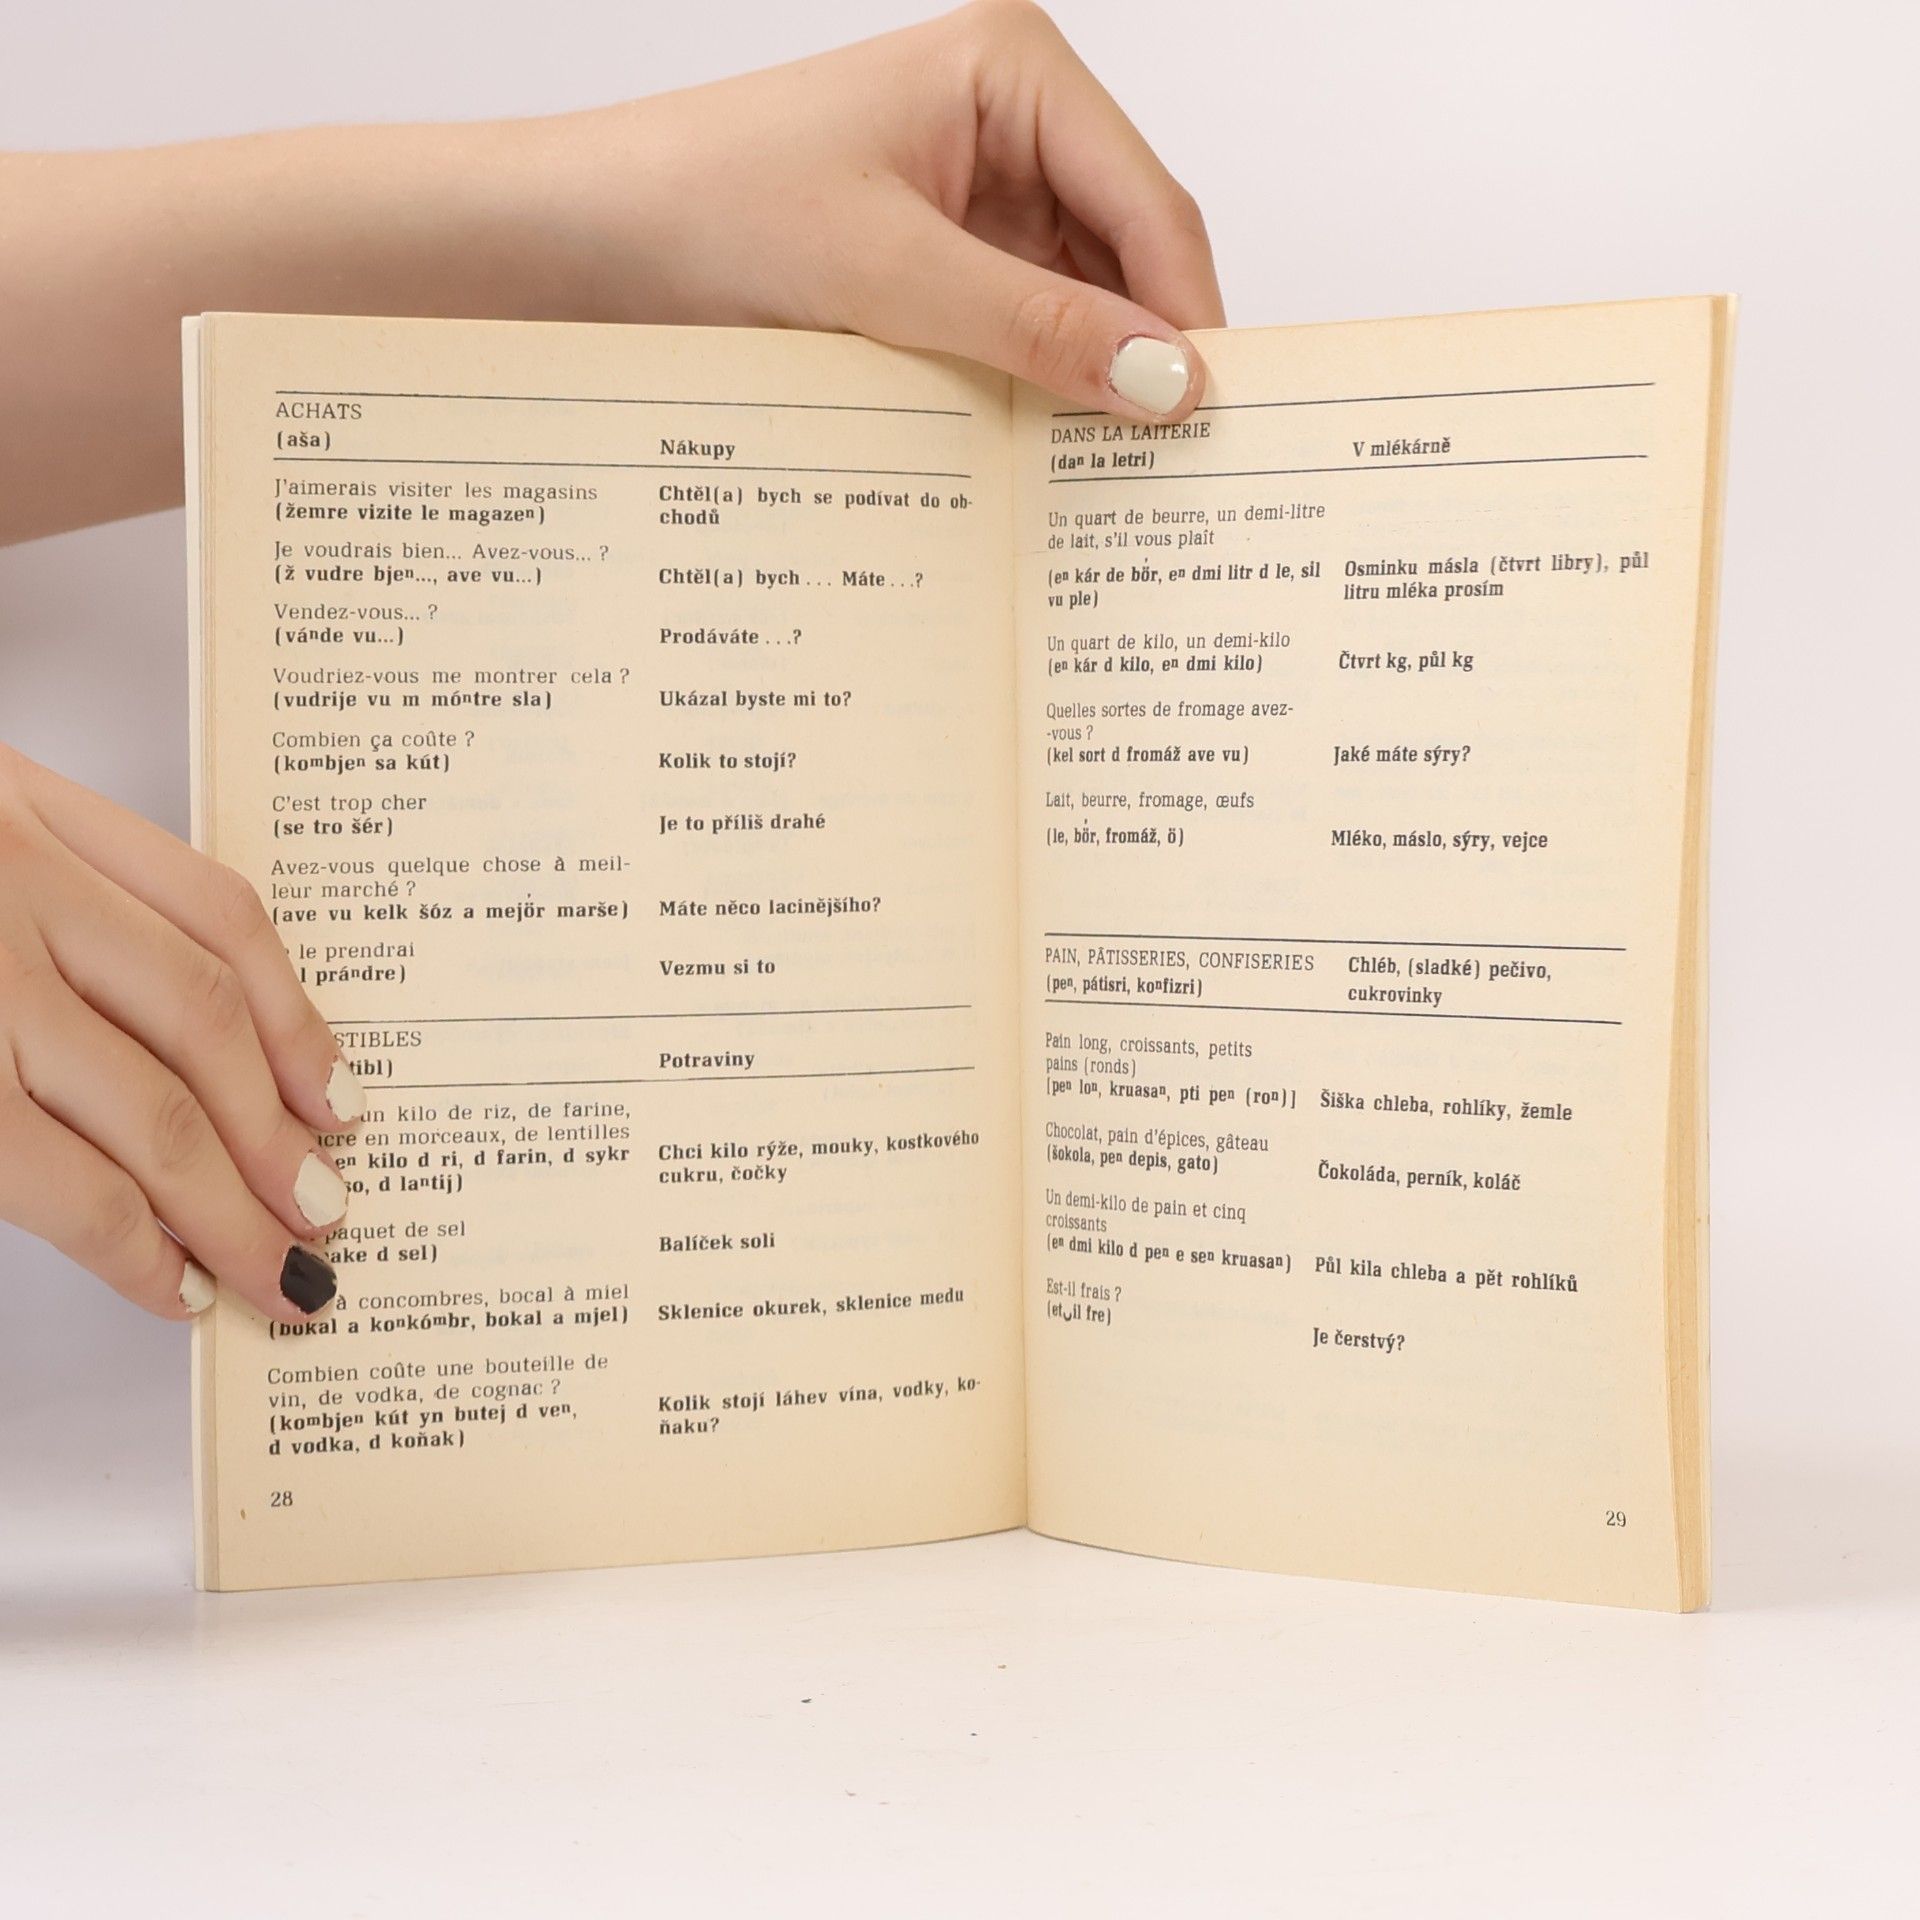 ACHATS
(aša)
Nákupy
J'aimerais visiter les magasins
(žemre vizite le magazeⁿ)
Chtěl(a) bych se podívat do ob-
chodů
Je voudrais bien... Avez-vous... ?
(ž vudre bjeⁿ..., ave vu...)
Chtěl(a) bych ... Máte ...?
Vendez-vous... ?
(váⁿde vu...)
Prodáváte ...?
Voudriez-vous me montrer cela ?
(vudrije vu m móⁿtre sla)
Ukázal byste mi to?
Combien ça coûte ?
(koᵐbjeⁿ sa kút)
Kolik to stojí?
C'est trop cher
(se tro šér)
Je to příliš drahé
Avez-vous quelque chose à meil-
leur marché ?
(ave vu kelk šóz a mejö̇r marše)
Máte něco lacinějšího?
le prendrai
l práⁿdre)
Vezmu si to
STIBLES
tibl)
Potraviny
un kilo de riz, de farine,
cre en morceaux, de lentilles
eⁿ kilo d ri, d farin, d sykr
so, d laⁿtij)
Chci kilo rýže, mouky, kostkového
cukru, čočky
paquet de sel
ake d sel)
Balíček soli
à concombres, bocal à miel
(bokal a koⁿkóᵐbr, bokal a mjel)
Sklenice okurek, sklenice medu
Combien coûte une bouteille de
vin, de vodka, de cognac ?
(koᵐbjeⁿ kút yn butej d veⁿ,
d vodka, d koňak)
Kolik stojí láhev vína, vodky, ko-
ňaku?
28
DANS LA LAITERIE
(daⁿ la letri)
V mlékárně
Un quart de beurre, un demi-litre
de lait, s'il vous plaît
(eⁿ kár de bö̇r, eⁿ dmi litr d le, sil
vu ple)
Osminku másla (čtvrt libry), půl
litru mléka prosím
Un quart de kilo, un demi-kilo
(eⁿ kár d kilo, eⁿ dmi kilo)
Čtvrt kg, půl kg
Quelles sortes de fromage avez-
-vous ?
(kel sort d fromáž ave vu)
Jaké máte sýry?
Lait, beurre, fromage, œufs
(le, bö̇r, fromáž, ö)
Mléko, máslo, sýry, vejce
PAIN, PÂTISSERIES, CONFISERIES
(peⁿ, pátisri, koⁿfizri)
Chléb, (sladké) pečivo,
cukrovinky
Pain long, croissants, petits
pains (ronds)
[peⁿ loⁿ, kruasaⁿ, pti peⁿ (roⁿ)]
Šiška chleba, rohlíky, žemle
Chocolat, pain d'épices, gâteau
(šokola, peⁿ depis, gato)
Čokoláda, perník, koláč
Un demi-kilo de pain et cinq
croissants
(eⁿ dmi kilo d peⁿ e seⁿ kruasaⁿ)
Půl kila chleba a pět rohlíků
Est-il frais ?
(et‿il fre)
Je čerstvý?
29